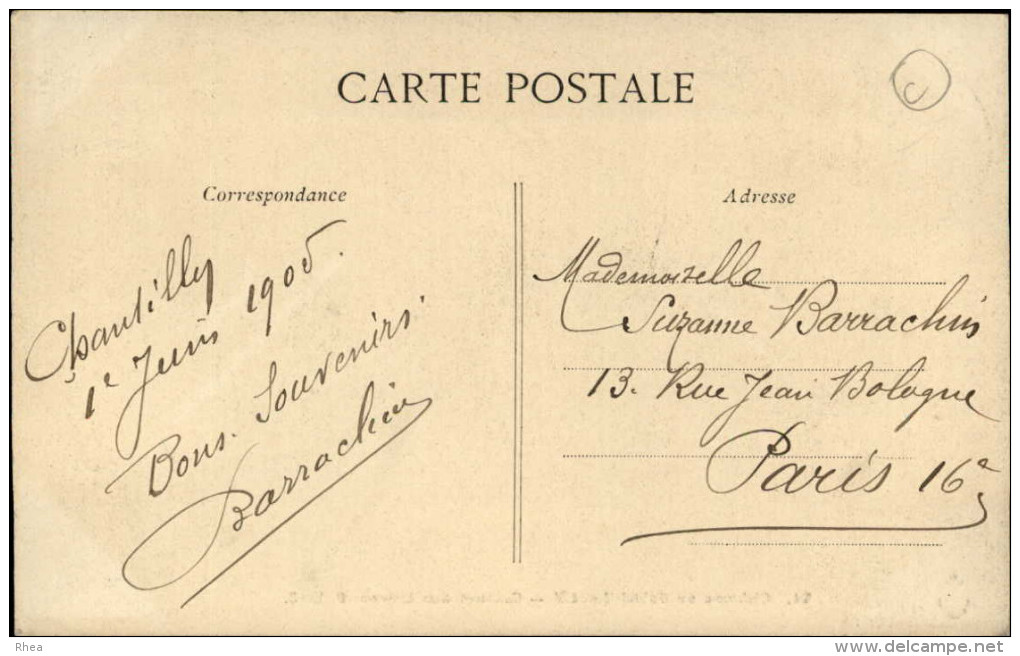 CARTE POSTALE
C
Correspondance
Chantilly
1e Juin 1905.
Bons. Souvenirs.
Barrachin
Adresse
Mademoiselle
Suzanne Barrachin
13. Rue Jean Bologne
Paris 16e
Rhea
www.delcampe.net